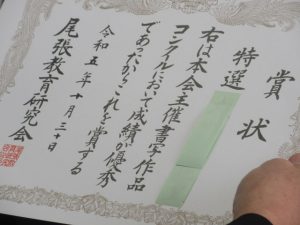 賞状
特選
右は本会主催書写作品
コンクールにおいて成績が優秀
であったからこれを賞する
令和五年十月三十日
尾張教育研究会